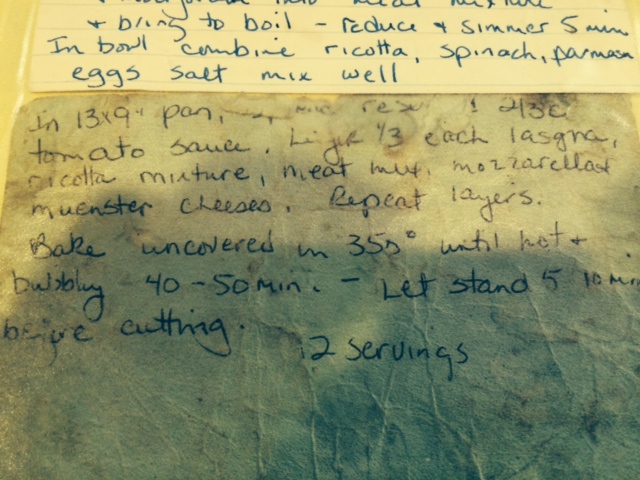 into meat mixture
+ bring to boil - reduce + simmer 5 min
In bowl combine ricotta, spinach, parmasa
eggs salt mix well
In 13x9" pan, 2/3c
tomato sauce. 1/3 each lasgna,
ricotta mixture, meat mix, mozzarella +
muenster cheeses. Repeat layers.
Bake uncovered in 350° until hot +
bubbly 40-50 min. - Let stand 5 10 min
before cutting.
12 servings